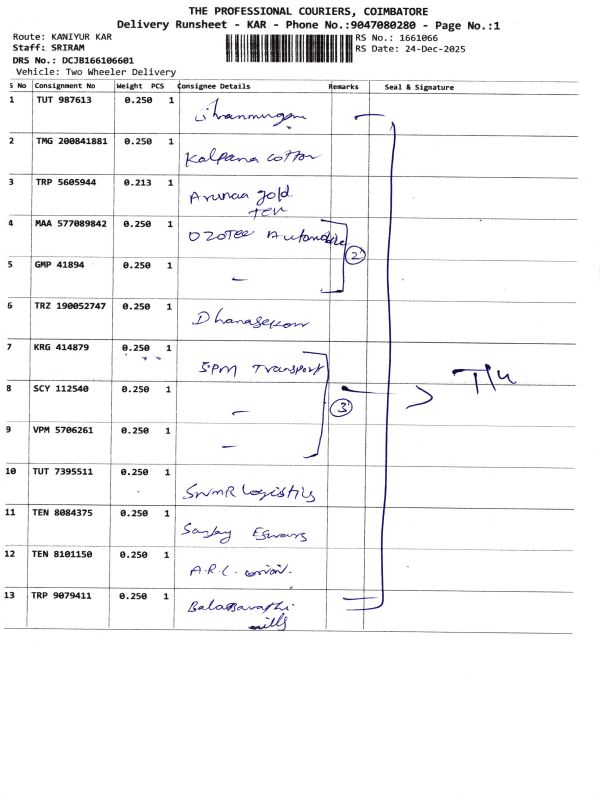 THE PROFESSIONAL COURIERS, COIMBATORE
Delivery Runsheet - KAR - Phone No.:9047080280 - Page No.:1
Route: KANIYUR KAR
RS No.: 1661066
Staff: SRIRAM
RS Date: 24-Dec-2025
DRS No.: DCJB166106601
Vehicle: Two Wheeler Delivery
S No Consignment No Weight PCS Consignee Details Remarks Seal & Signature
1 TUT 987613 0.250 1
2 TMG 200841881 0.250 1 Kalpana cotton
3 TRP 5605944 0.213 1 Arunaa gold
Tex
4 MAA 577089842 0.250 1 OZOTEC Automobile
2
5 GMP 41894 0.250 1 –
6 TRZ 190052747 0.250 1 Dhanasekar
7 KRG 414879 0.250 1 SPM Transport
8 SCY 112540 0.250 1 –
3
9 VPM 5706261 0.250 1 –
10 TUT 7395511 0.250 1 SNMR Logistics
11 TEN 8084375 0.250 1 Sanjay
12 TEN 8101150 0.250 1 A.R.C.
13 TRP 9079411 0.250 1 Balabarathi
mills